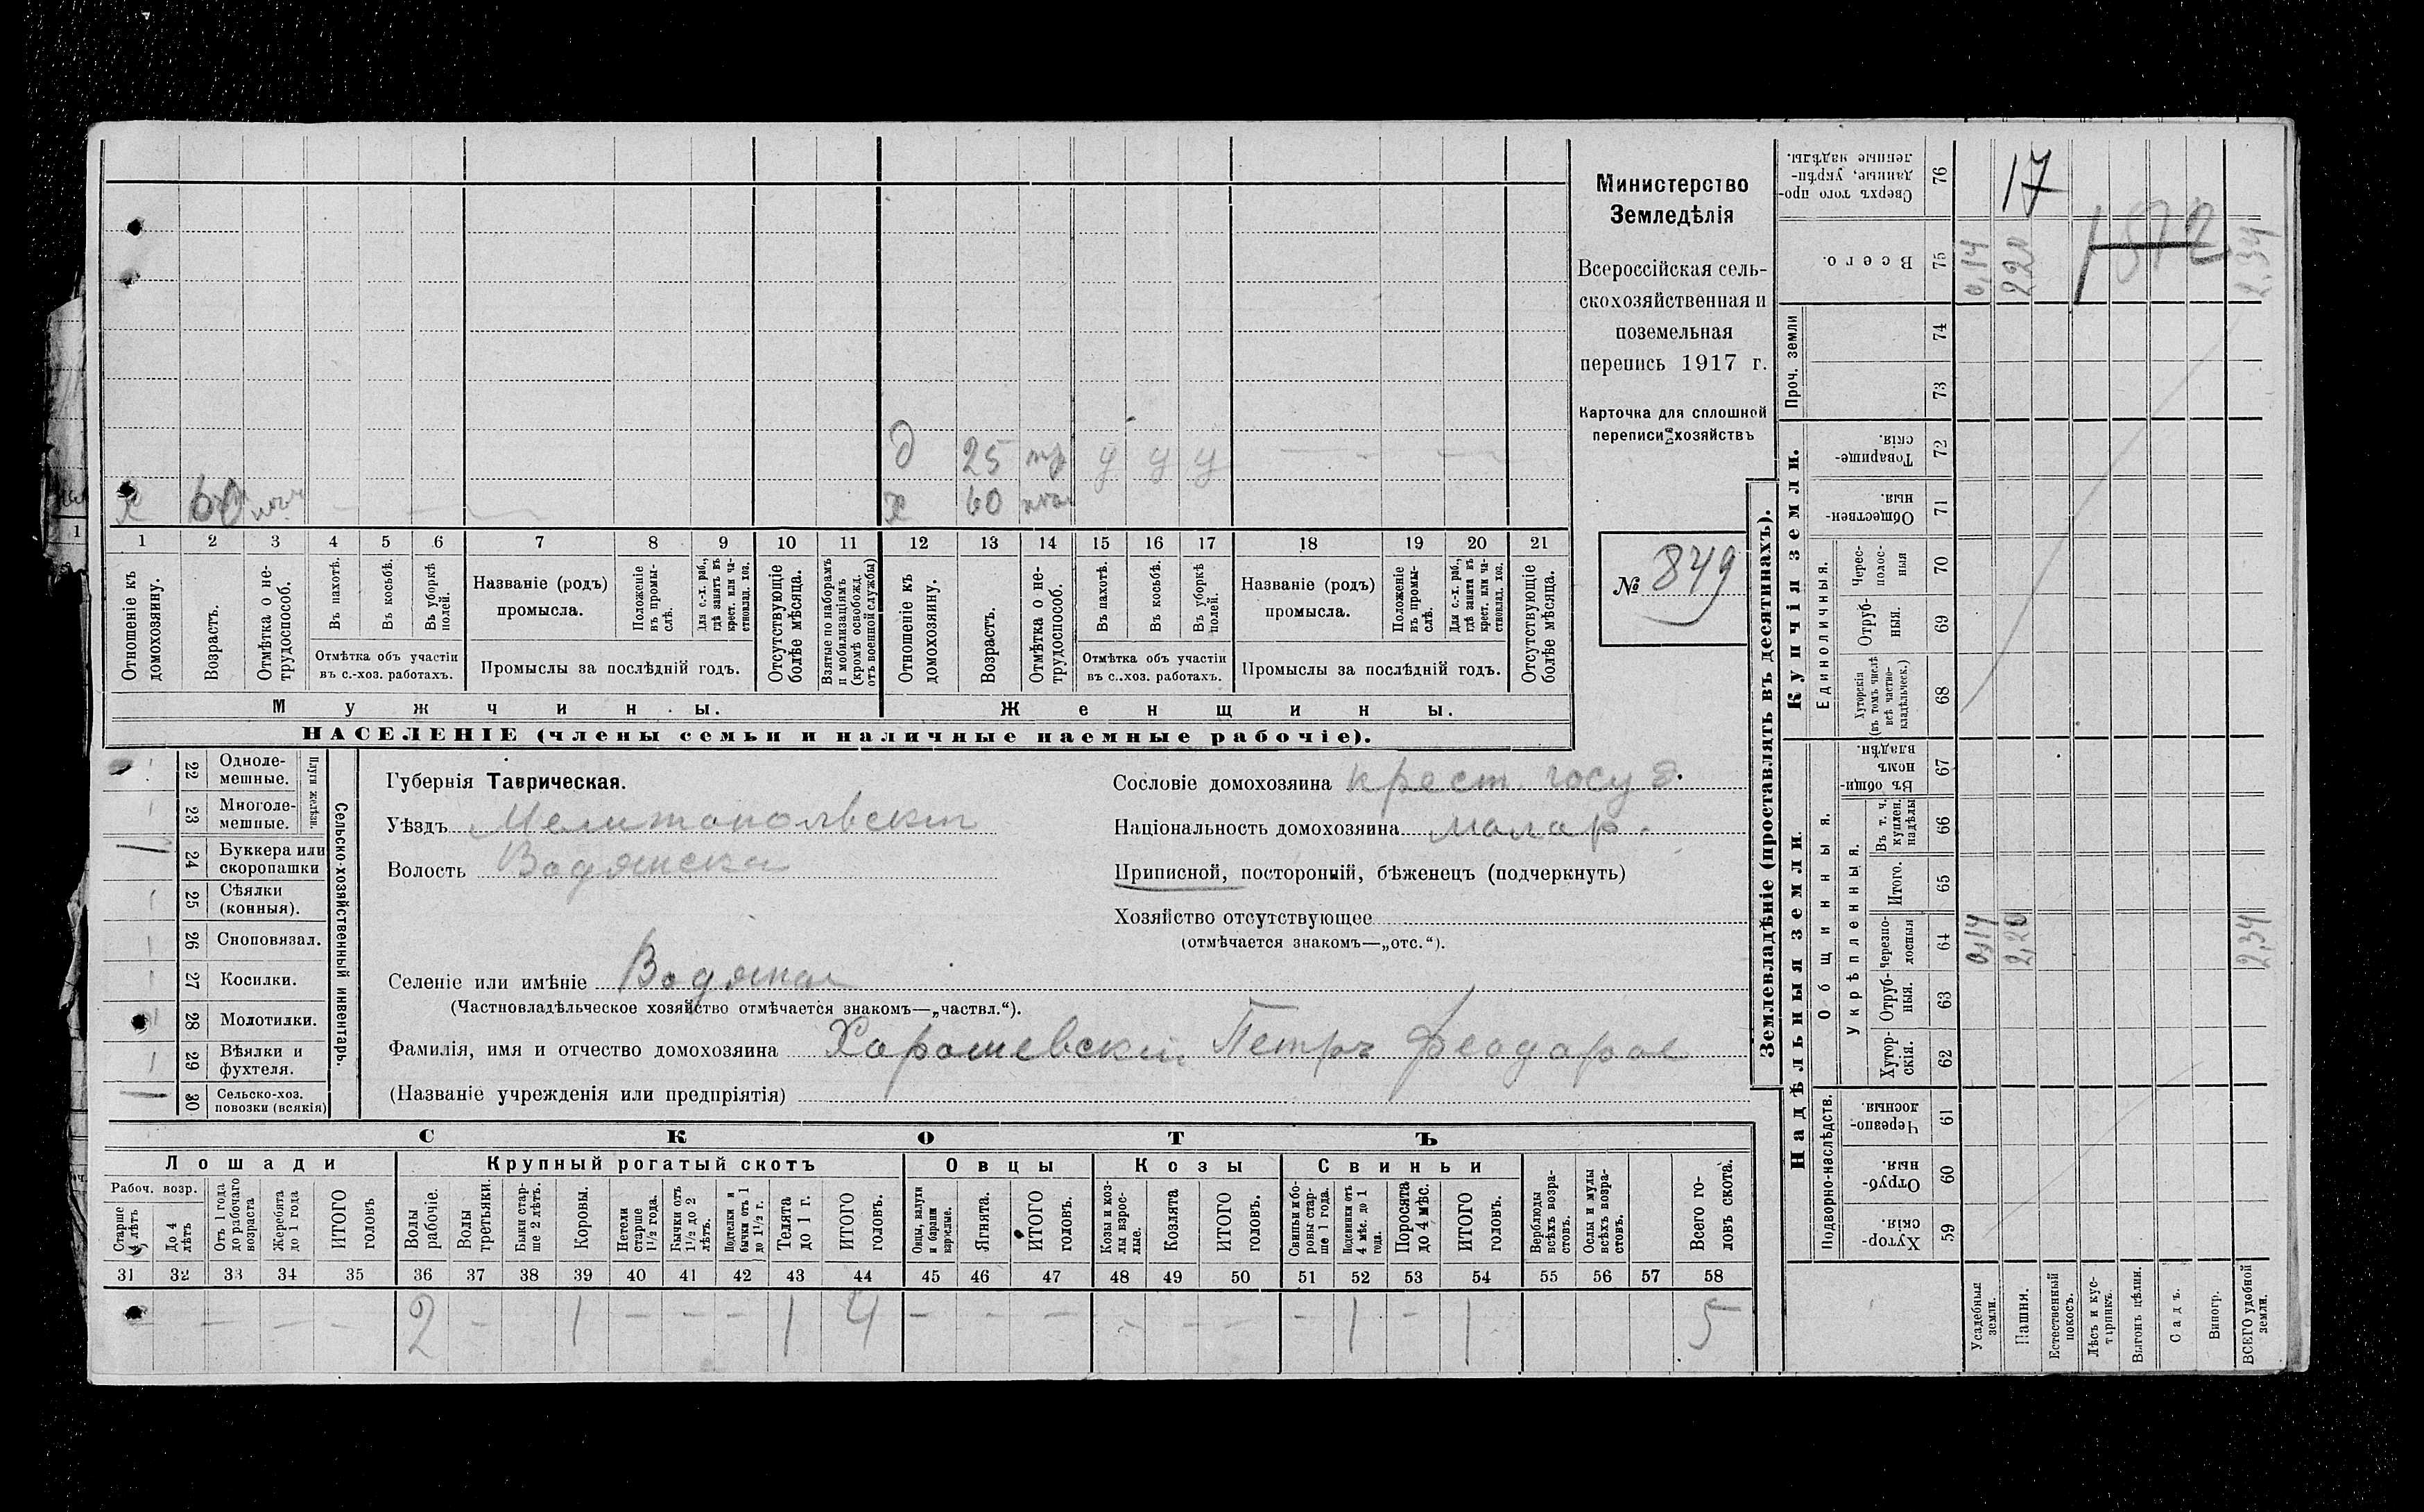 Министерство
Земледѣлія
Всероссійская сель-
скохозяйственная и
поземельная
перепись 1917 г.
Карточка для сплошной
переписи хозяйствъ
№ 849
д 25 у у у
х 60 х 60
1 2 3 4 5 6 7 8 9 10 11 12 13 14 15 16 17 18 19 20 21
Отношеніе къ домохозяину.
Возрастъ.
Отмѣтка о не-трудоспособ.
Въ пахотѣ.
Въ косьбѣ.
Въ уборкѣ полей.
Отмѣтка объ участіи
въ с.-хоз. работахъ.
Названіе (родъ)
промысла.
Положеніе въ промы-слѣ.
Для с.-х. раб., гдѣ занятъ въ крест. или ча-стновлад. хоз.
Промыслы за послѣдній годъ.
Отсутствующіе болѣе мѣсяца.
Взятые по наборамъ и мобилизаціямъ (кромѣ освобожд. отъ военной службы)
Отношеніе къ домохозяину.
Возрастъ.
Отмѣтка о не-трудоспособ.
Въ пахотѣ.
Въ косьбѣ.
Въ уборкѣ полей.
Отмѣтка объ участіи
въ с..хоз. работахъ.
Названіе (родъ)
промысла.
Положеніе въ промы-слѣ.
Для с.-х. раб., гдѣ занята въ крест. или ча-стновлад. хоз.
Промыслы за послѣдній годъ.
Отсутствующіе болѣе мѣсяца.
Мужчины. Женщины.
НАСЕЛЕНІЕ (члены семьи и наличные наемные рабочіе).
Сельско-хозяйственный инвентарь.
Плуги желѣзн.
22 Одноле-мешные.
23 Многоле-мешные.
24 Буккера или скоропашки
25 Сѣялки (конныя).
26 Сноповязал.
27 Косилки.
28 Молотилки.
29 Вѣялки и фухтеля.
30 Сельско-хоз. повозки (всякія)
Губернія Таврическая.
Уѣздъ Мелитопольскій
Волость Водянска
Сословіе домохозяина крест. госуд.
Національность домохозяина малор.
Приписной, посторонній, бѣженецъ (подчеркнуть)
Хозяйство отсутствующее
(отмѣчается знакомъ—„отс.“).
Селеніе или имѣніе Водяная
(Частновладѣльческое хозяйство отмѣчается знакомъ—„частвл.“).
Фамилія, имя и отчество домохозяина Харошевскій Петръ Феодоров
(Названіе учрежденія или предпріятія)
СКОТЪ
Лошади Крупный рогатый скотъ Овцы Козы Свиньи
Рабоч. возр.
Старше 4 лѣтъ
До 4 лѣтъ
Отъ 1 года до рабочаго возраста
Жеребята до 1 года
ИТОГО головъ
Волы рабочіе.
Волы третьяки.
Быки стар-ше 2 лѣтъ.
Коровы.
Нетели старше 1½ года.
Бычки отъ 1½ до 2 лѣтъ.
Подтелки и бычки отъ 1 до 1½ г.
Телята до 1 г.
ИТОГО головъ.
Овцы, валухи и бараны взрослые.
Ягнята.
ИТОГО головъ.
Козы и коз-лы взрос-лые.
Козлята
ИТОГО головъ.
Свиньи и бо-ровы стар-ше 1 года.
Подсвинки отъ 4 мѣс. до 1 года.
Поросята до 4 мѣс.
ИТОГО головъ.
Верблюды всѣхъ возра-стовъ.
Ослы и мулы всѣхъ возра-стовъ.
Всего го-ловъ скота.
31 32 33 34 35 36 37 38 39 40 41 42 43 44 45 46 47 48 49 50 51 52 53 54 55 56 57 58
— — — 2 — 1 — — — 1 4 — — — — — — — 1 — 1 5
Землевладѣніе (проставлять въ десятинахъ).
Купчія земли.
Надѣльныя земли.
Проч. земли
Единоличныя.
Общинныя.
Укрѣпленныя.
Подворно-наслѣдств.
76 Сверхъ того про-данные, укрѣп-ленные надѣлы.
75 Всего.
74
73
72 Товарище-скія.
71 Обществен-ныя.
70 Черес-полос-ныя
69 Отруб-ныя.
68 Хуторскія (въ томъ числѣ всѣ частно-владѣльческ.)
67 Въ общин-номъ владѣн.
66 Въ т. ч. куплен. надѣлы
65 Итого.
64 Черезпо-лосныя
63 Отруб-ныя.
62 Хутор-скія.
61 Черезпо-лосныя.
60 Отруб-ныя.
59 Хутор-скія.
Усадебныя земли.
Пашня.
Естественный покосъ.
Лѣсъ и кус-тарникъ.
Выгонъ цѣлин.
Садъ.
Виногр.
ВСЕГО удобной земли.
17
1872
0,14 2 20 2,34
0,14 2,20 2,34